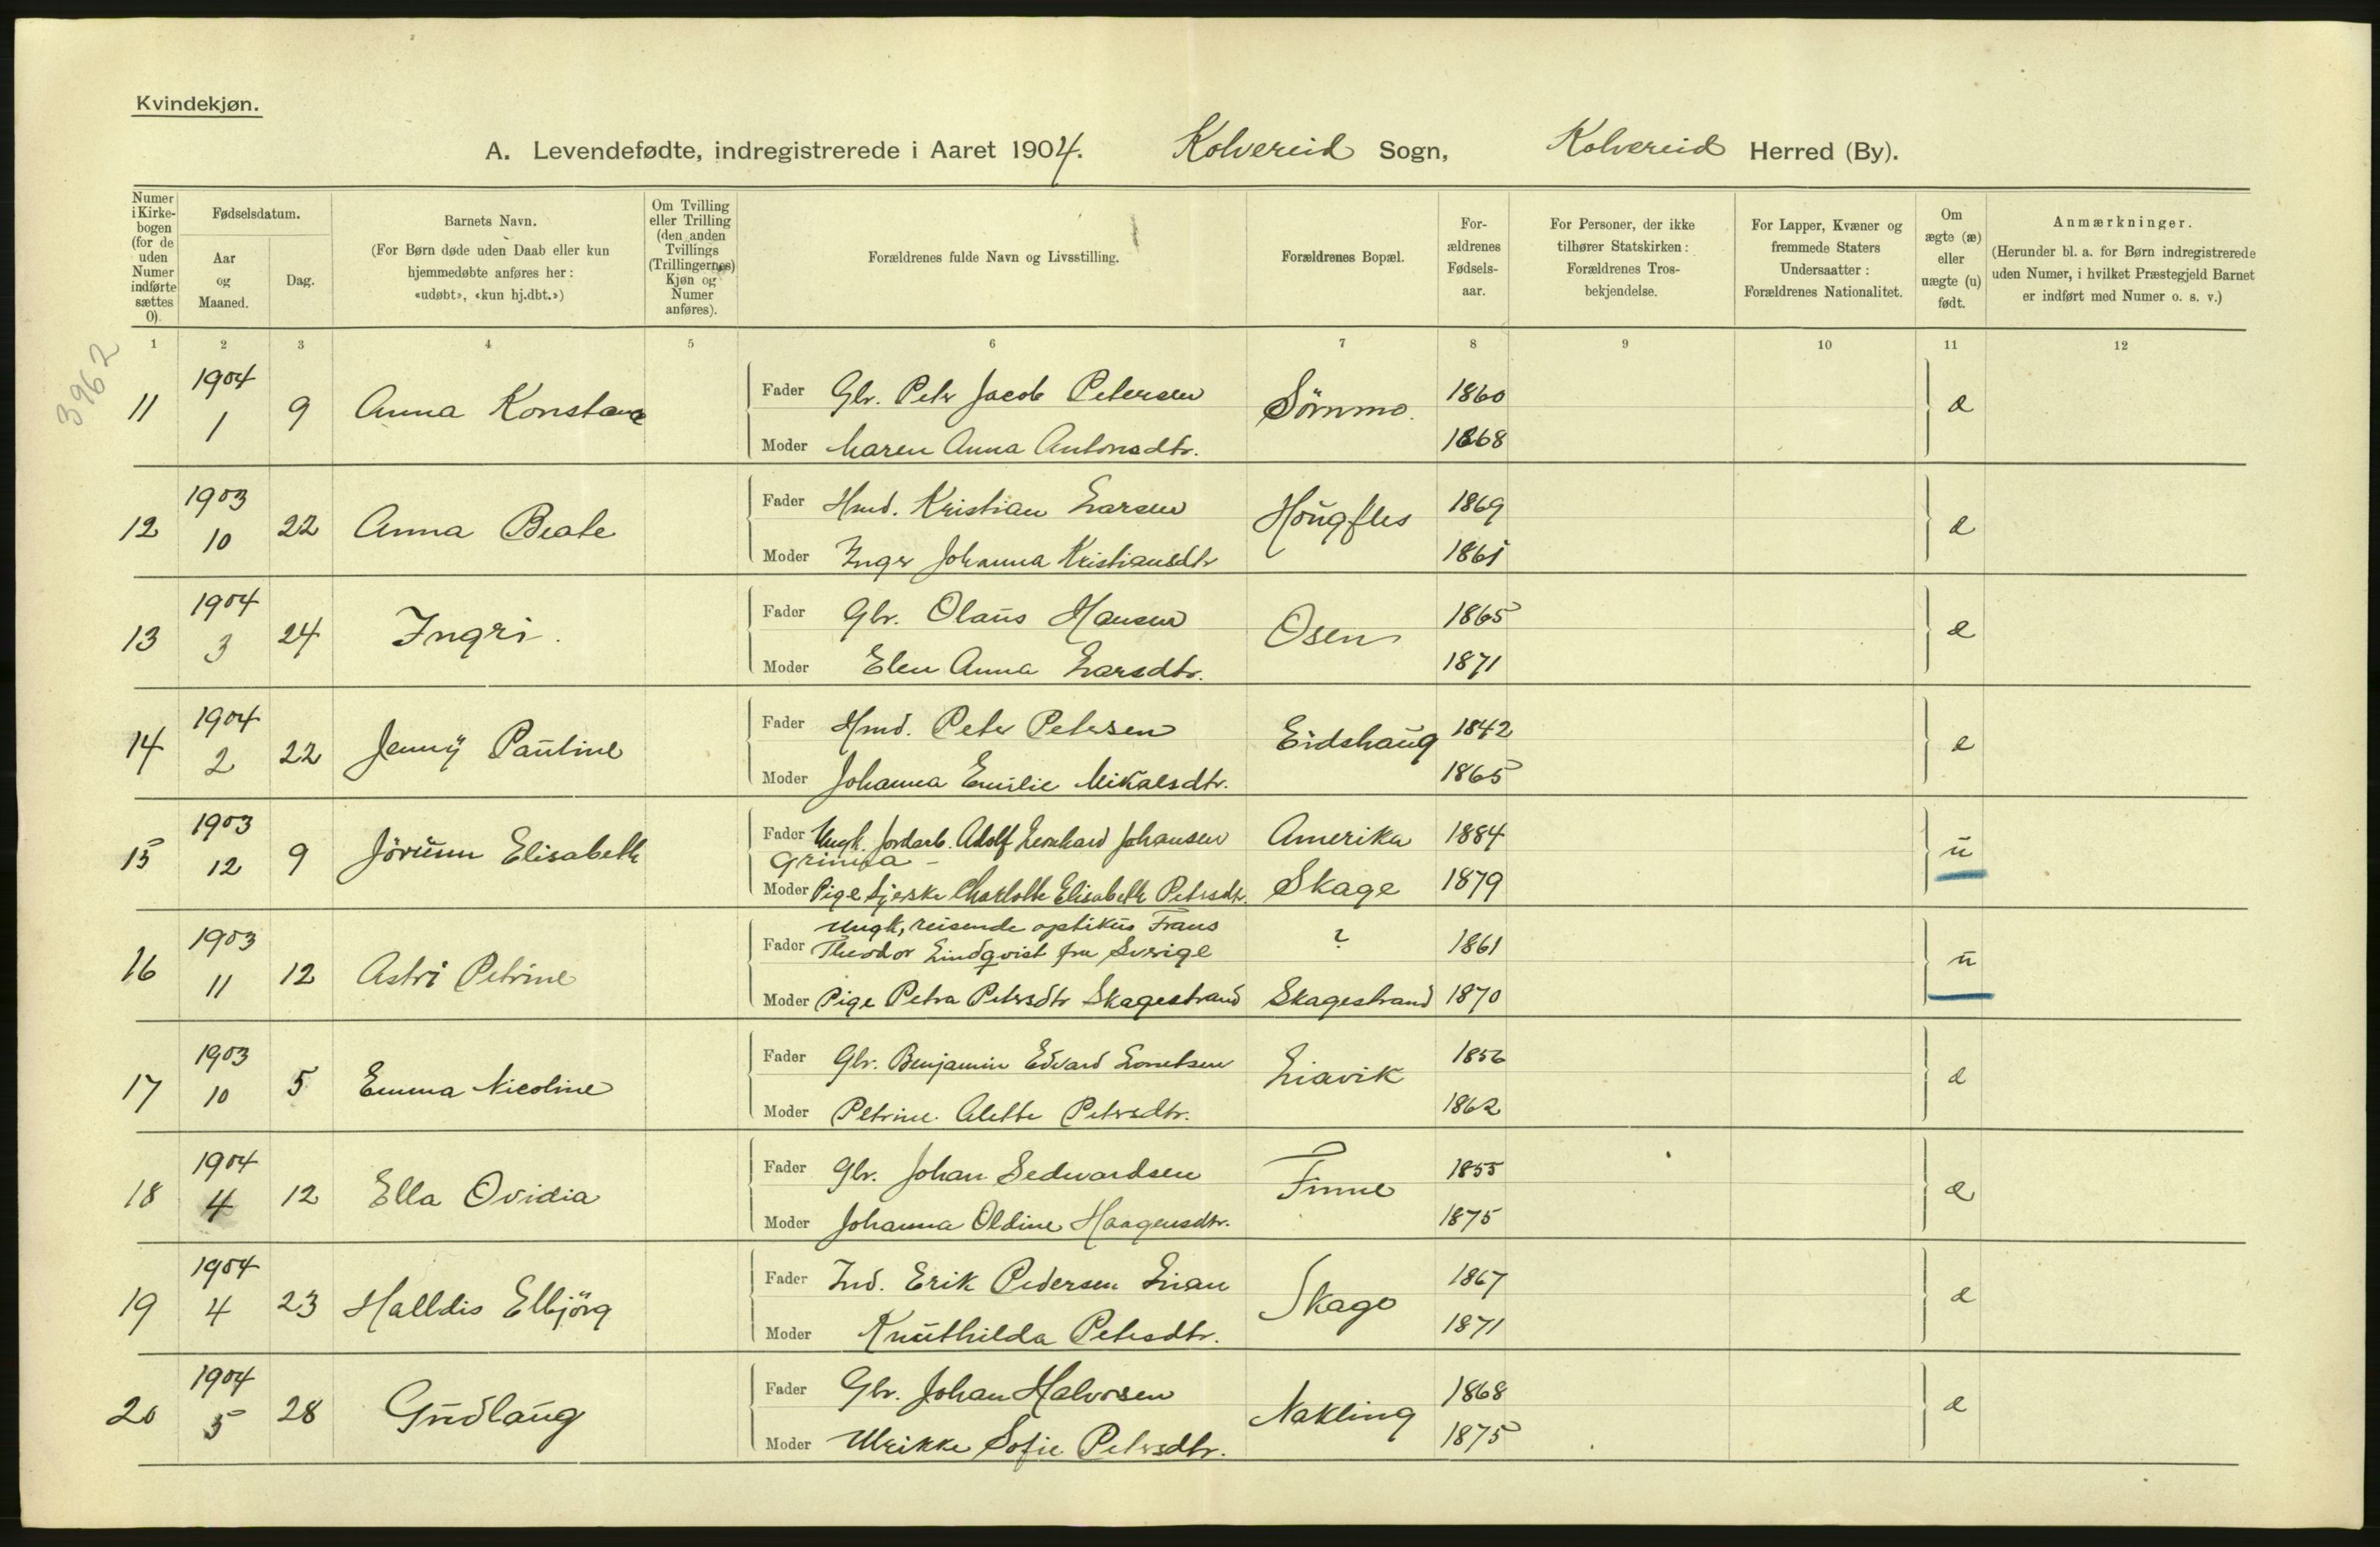 Kvindekjøn.
A. Levendefødte, indregistrerede i Aaret 1904. Kolvereid Sogn, Kolvereid Herred (By).
Numer i Kirkebogen (for de uden Numer indførte sættes 0).
Fødselsdatum.
Aar og Maaned.
Dag.
Barnets Navn.
(For Børn døde uden Daab eller kun hjemmedøbte anføres her: «udøbt», «kun hj.dbt.»)
Om Tvilling eller Trilling (den anden Tvillings (Trillingernes) Kjøn og Numer anføres).
Forældrenes fulde Navn og Livsstilling.
Forældrenes Bopæl.
Forældrenes Fødselsaar.
For Personer, der ikke tilhører Statskirken: Forældrenes Trosbekjendelse.
For Lapper, Kvæner og fremmede Staters Undersaatter: Forældrenes Nationalitet.
Om ægte (æ) eller uægte (u) født.
Anmærkninger.
(Herunder bl. a. for Børn indregistrerede uden Numer, i hvilket Præstegjeld Barnet er indført med Numer o. s. v.)
1 2 3 4 5 6 7 8 9 10 11 12
3962
11 1904 1 9 Anna Konstane
Fader Gbr. Peter Jacob Petersen Sömmo. 1860 æ
Moder Maren Anna Antonsdtr. 1868
12 1903 10 22 Anna Beate
Fader Hmd. Kristian Larsen Hougfles 1869 æ
Moder Inger Johanna Kristiansdtr 1861
13 1904 3 24 Ingri.
Fader Gbr. Olaus Hansen Osen 1865 æ
Moder Elen Anna Larsdtr. 1871
14 1904 2 22 Jenny Pauline
Fader Hmd. Peter Petersen Eidshaug 1842 æ
Moder Johanna Emilie Mikalsdtr. 1865
15 1903 12 9 Jörunn Elisabeth
Fader Ungk. Jordarb. Adolf Leonhard Johansen Amerika 1884 u
Grinna -
Moder Pige Charlotte Elisabeth Petersdtr. Skage 1879
16 1903 11 12 Astri Petrine
Ungk, reisende optikus Frans
Fader Theodor Lindqvist fra Sverige ? 1861 u
Moder Pige Petra Petersdtr Skagestrand Skagestrand 1870
17 1903 10 5 Emma Nicoline
Fader Gbr. Benjamin Edvard Lorntsen Liavik 1856 æ
Moder Petrine Alette Petersdtr. 1862
18 1904 4 12 Ella Ovidia
Fader Gbr. Johan Sedvardsen Finne 1855 æ
Moder Johanna Oldine Haagensdtr. 1875
19 1904 4 23 Halldis Elbjörg
Fader Ind. Erik Pedersen Lian Skage 1867 æ
Moder Knuthilda Petersdtr. 1871
20 1904 5 28 Gudlaug
Fader Gbr. Johan Halvorsen Nakling 1868 æ
Moder Ulrikke Sofie Petersdtr. 1875